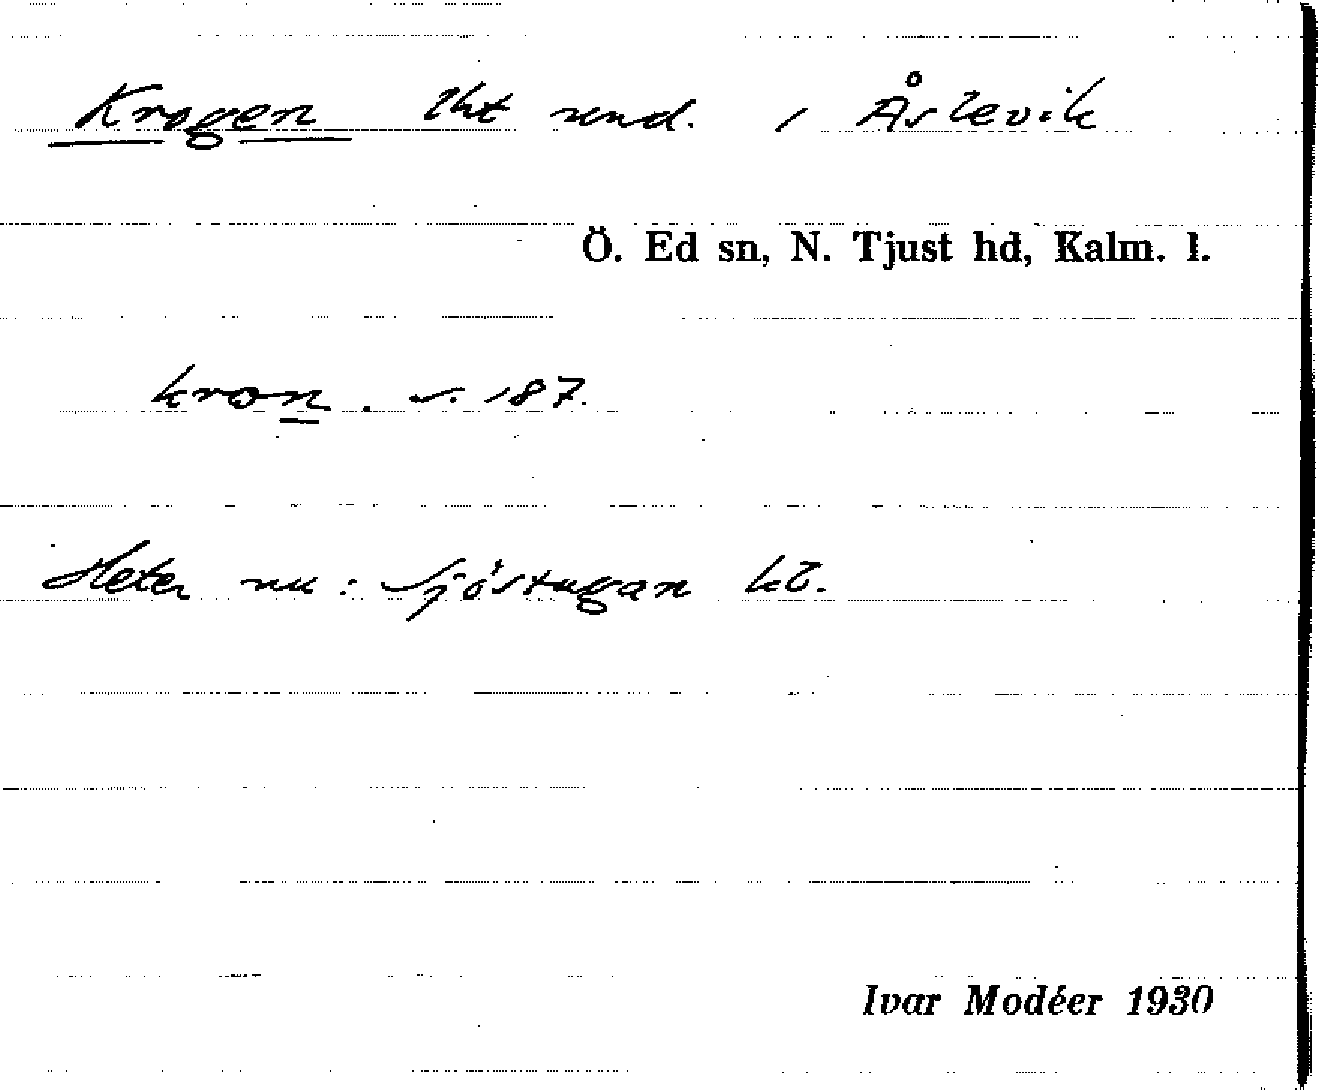 Krogen lht und. i Åslevik
Ö. Ed sn, N. Tjust hd, Kalm. l.
kron. s. 187.
Heter nu: Sjöstugan kt.
Ivar Modéer 1930